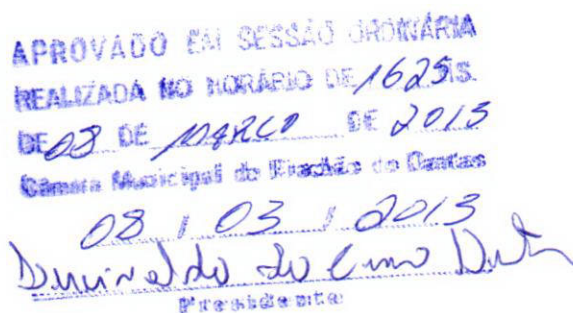 APROVADO EM SESSÃO ORDINÁRIA
REALIZADA NO HORÁRIO DE 1625 S.
DE 08 DE MARCO DE 2013
Câmara Municipal de Riachão do Dantas
08 / 03 / 2013
do
Presidente